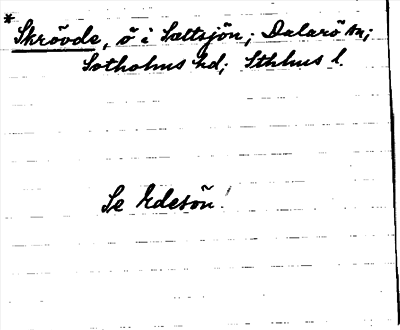 * Skrövde, ö i Sættsjön; Dalarö sn;
Sotholms hd; Sthlms l.
Se Edesön!